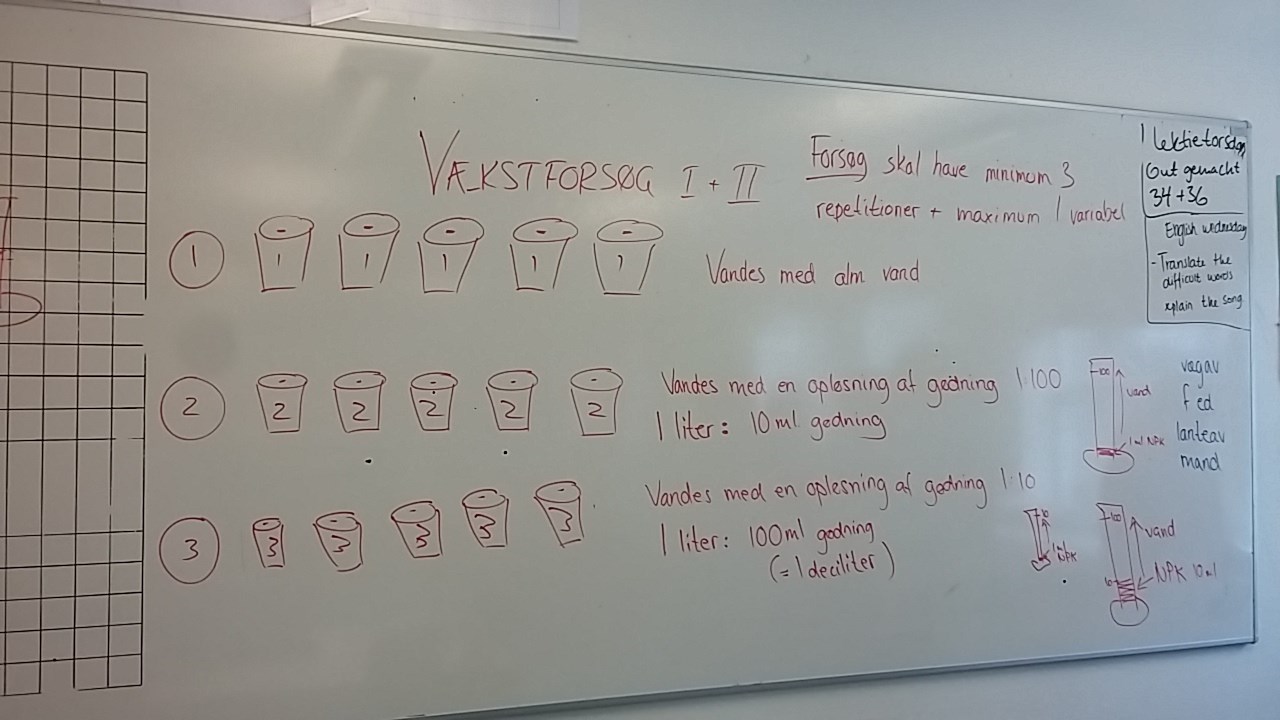 VÆKSTFORSØG I + II
Forsøg skal have minimum 3
repetitioner + maximum 1 variabel
1
1 1 1 1 1
Vandes med alm vand
2
2 2 2 2 2
Vandes med en opløsning af gødning 1:100
1 liter: 10 ml gødning
100
vand
1 ml NPK
3
3 3 3 3 3
Vandes med en opløsning af gødning 1:10
1 liter: 100ml gødning
(= 1 deciliter)
10
NPK
100
vand
10
NPK 10 ml
lektietorsdag
Gut gemacht
34 + 36
English wednesday
- Translate the
difficult words
xplain the song
vagav
f ed
lanteav
mand